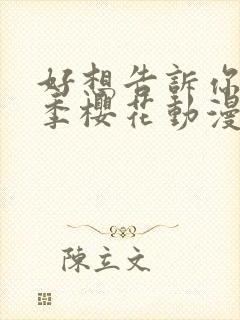 好想告訴你
季櫻花動漫
陳立文